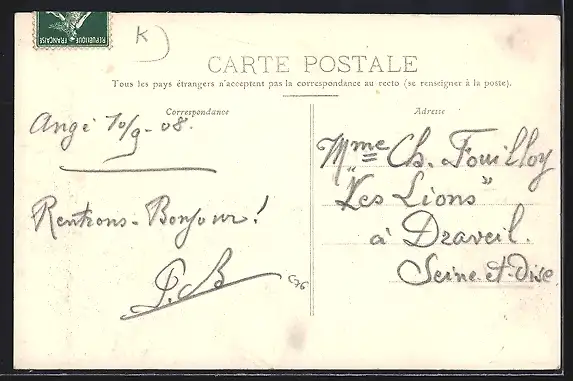 REPUBLIQUE FRANÇAISE
K
CARTE POSTALE
Tous les pays étrangers n'acceptent pas la correspondance au recto (se renseigner à la poste).
Correspondance
Angé 10/9-08.
Rentrons - Bonjour !
P. B
Adresse
Mme Ch. Fouilloy
"Les Lions"
à Draveil.
Seine-et-Oise